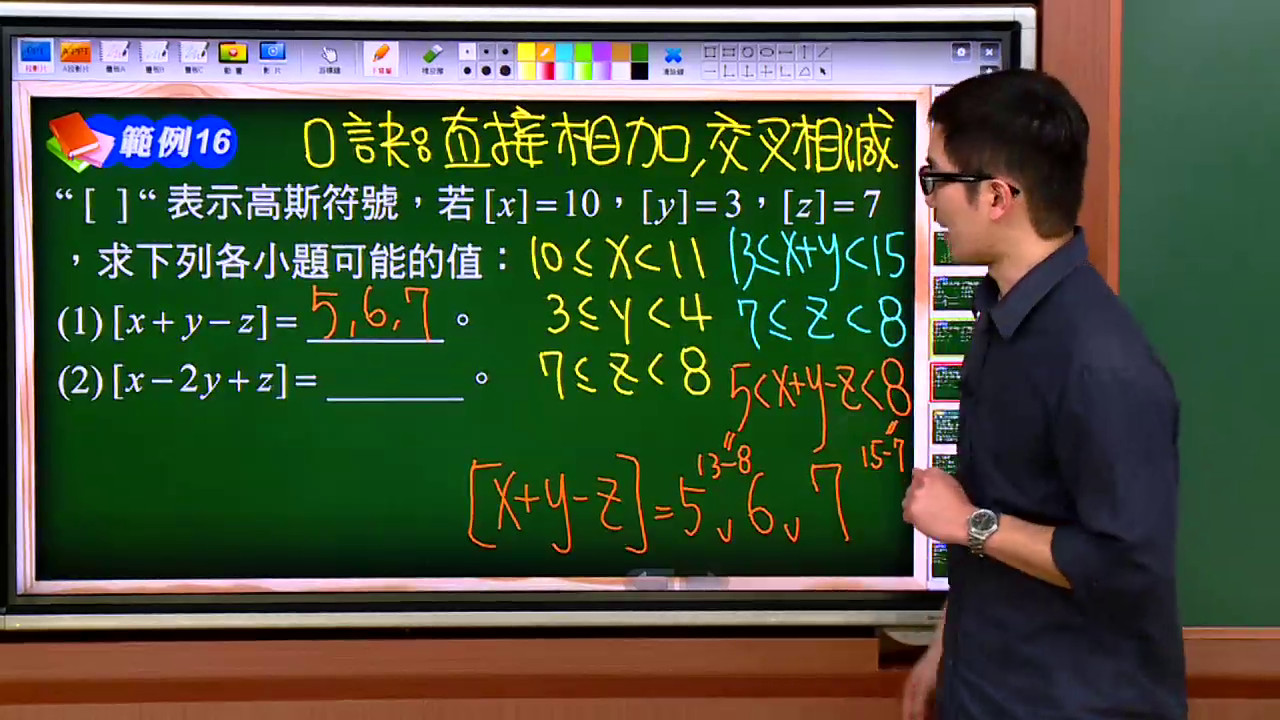 範例16
口訣:直接相加,交叉相減
“[ ]“表示高斯符號,若[x]=10,[y]=3,[z]=7
,求下列各小題可能的值:
10≤x<11
13≤x+y<15
(1)[x+y−z]= 5,6,7 。
3≤y<4
7≤z<8
(2)[x−2y+z]= 。
7≤z<8
5<x+y-z<8
13-8
15-7
[x+y-z]=5,6,7